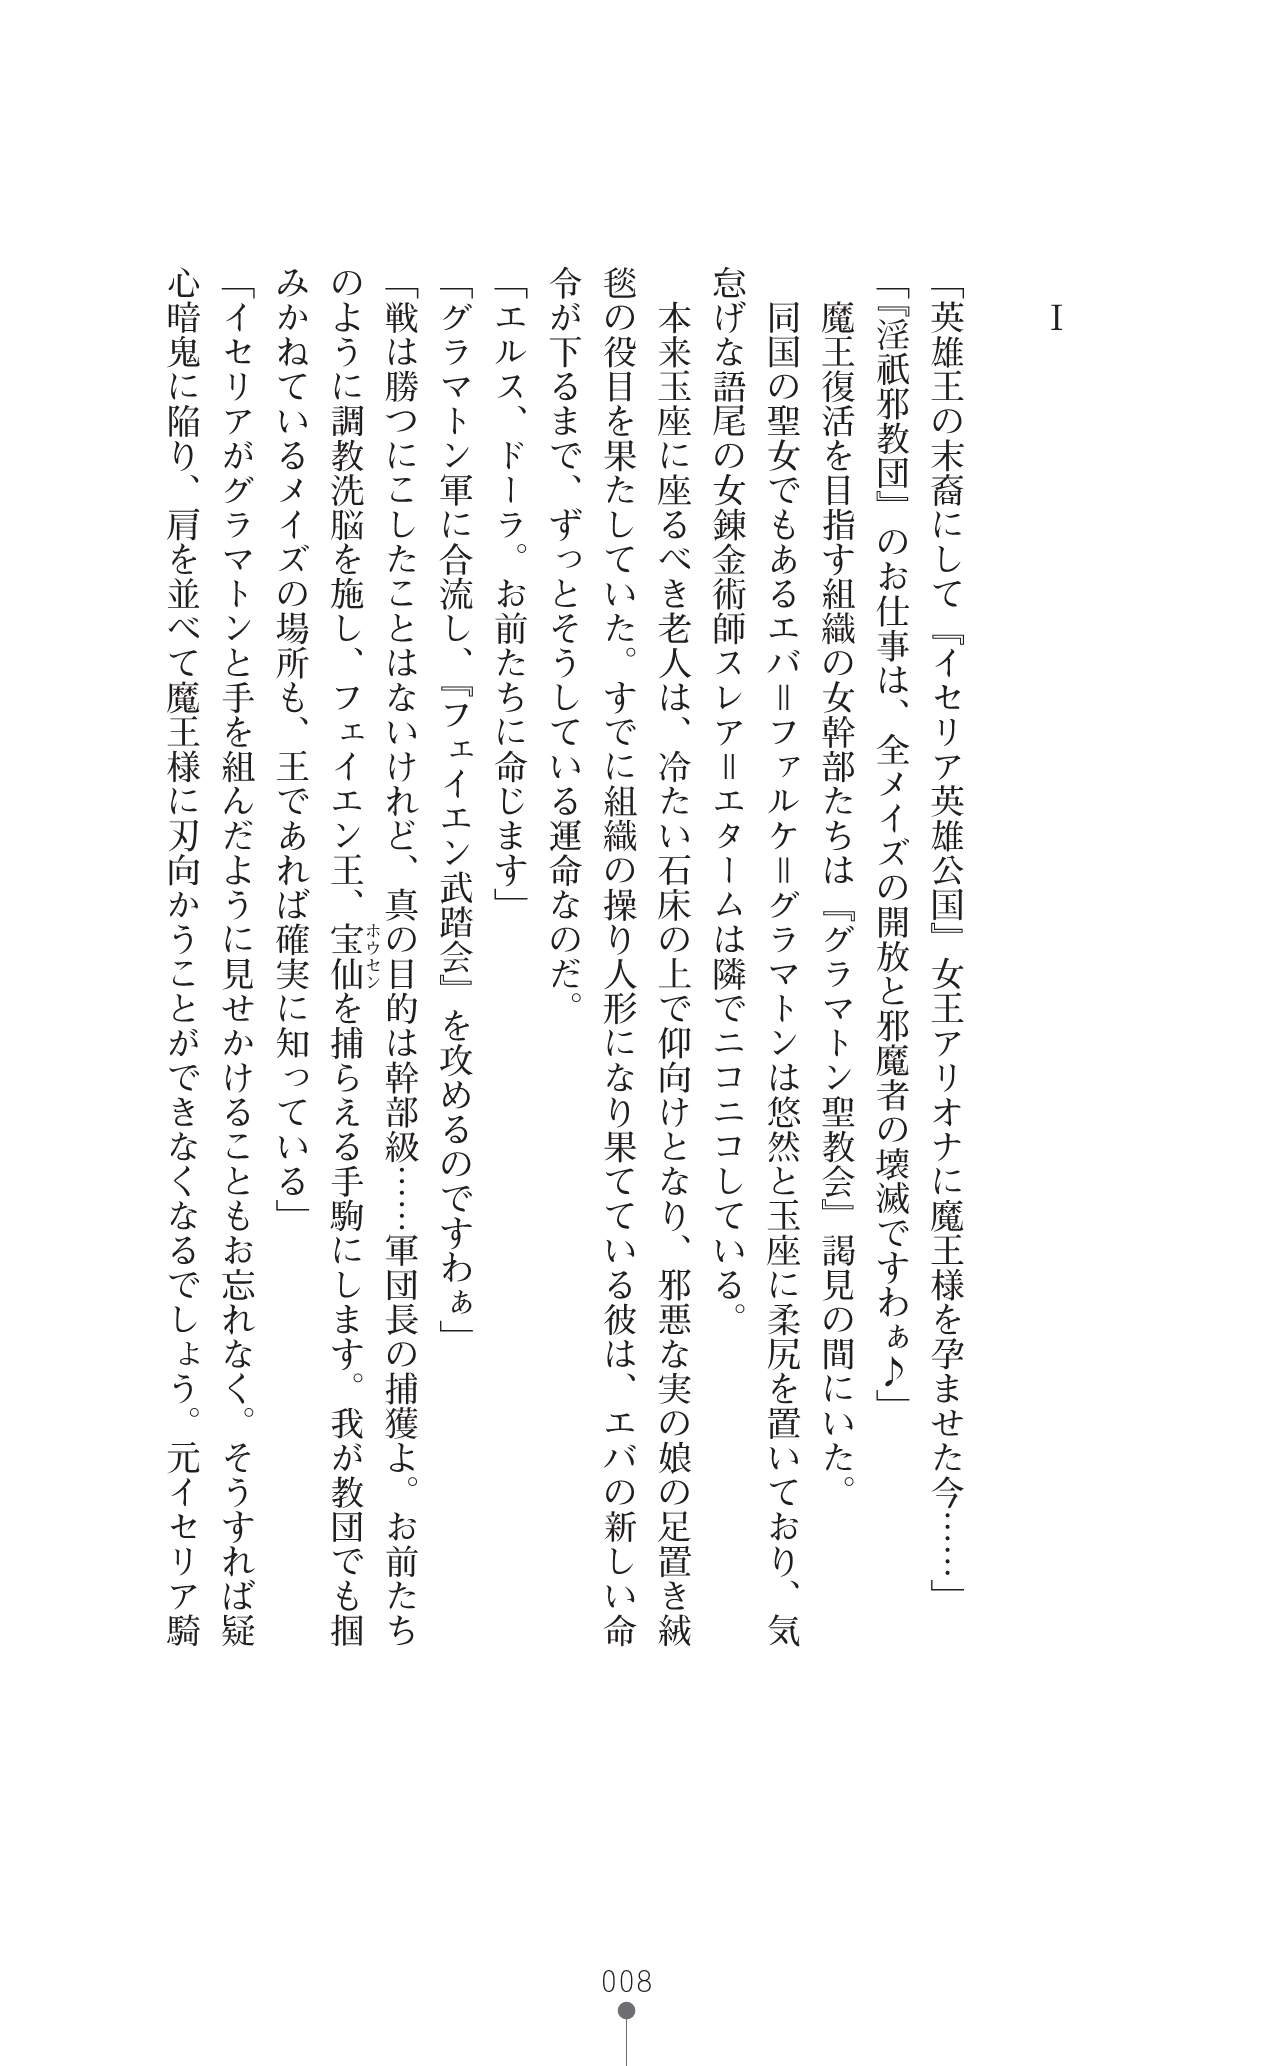 I
「英雄王の末裔にして『イセリア英雄公国』女王アリオナに魔王様を孕ませた今……」
「『淫祇邪教団』のお仕事は、全メイズの開放と邪魔者の壊滅ですわぁ♪」
　魔王復活を目指す組織の女幹部たちは『グラマトン聖教会』謁見の間にいた。
　同国の聖女でもあるエバ＝ファルケ＝グラマトンは悠然と玉座に柔尻を置いており、気
怠げな語尾の女錬金術師スレア＝エタームは隣でニコニコしている。
　本来玉座に座るべき老人は、冷たい石床の上で仰向けとなり、邪悪な実の娘の足置き絨
毯の役目を果たしていた。すでに組織の操り人形になり果てている彼は、エバの新しい命
令が下るまで、ずっとそうしている運命なのだ。
「エルス、ドーラ。お前たちに命じます」
「グラマトン軍に合流し、『フェイエン武踏会』を攻めるのですわぁ」
「戦は勝つにこしたことはないけれど、真の目的は幹部級……軍団長の捕獲よ。お前たち
のように調教洗脳を施し、フェイエン王、宝仙ホウセンを捕らえる手駒にします。我が教団でも掴
みかねているメイズの場所も、王であれば確実に知っている」
「イセリアがグラマトンと手を組んだように見せかけることもお忘れなく。そうすれば疑
心暗鬼に陥り、肩を並べて魔王様に刃向かうことができなくなるでしょう。元イセリア騎
008